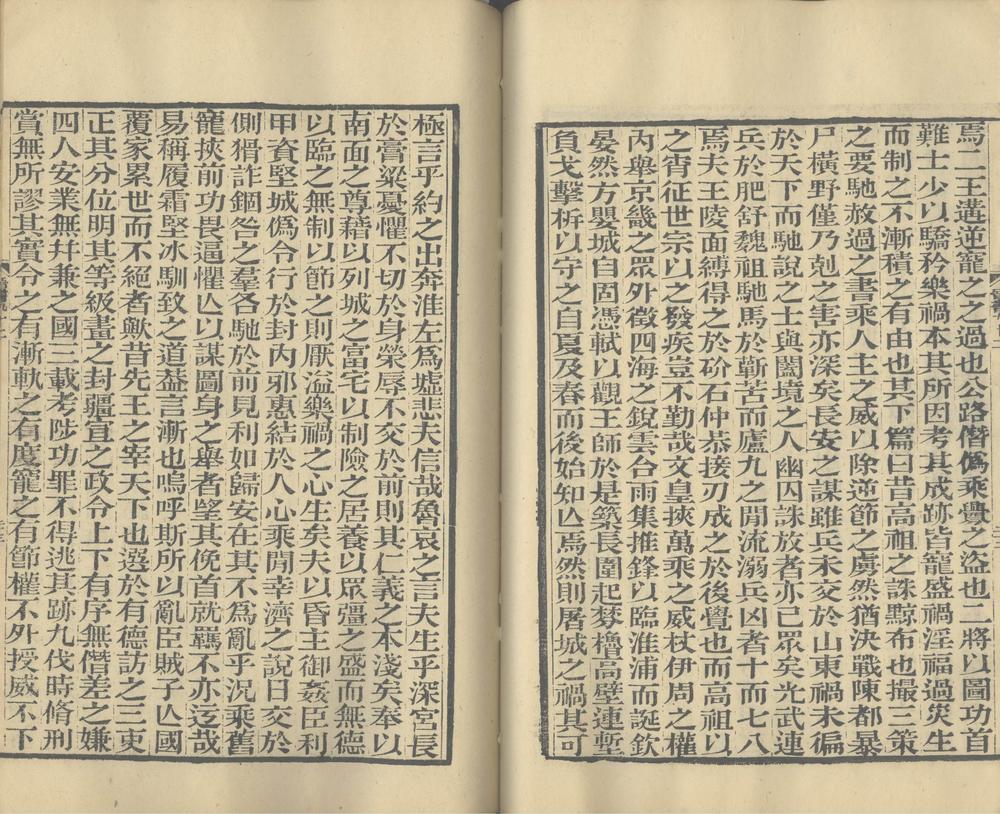 焉二王遘逆寵之之過也公路僭僞乘釁之盜也二將以圖功首
難士少以驕矜樂禍本其所因考其成跡皆寵盛禍淫福過災生
而制之不漸積之有由也其下篇曰昔高祖之誅黥布也撮三策
之要馳赦過之書乘人主之威以除逆節之虜然猶決戰陳都暴
尸橫野僅乃剋之害亦深矣長安之謀雖兵未交於山東禍未徧
於天下而馳說之士與闔境之人幽囚誅放者亦已眾矣光武連
兵於肥舒魏祖馳馬於蘄苦而廬九之閒流溺兵凶者十而七八
焉夫王陵面縛得之於砎石仲恭接刃成之於後覺也而高祖以
之宵征世宗以之發疾豈不勤哉文皇挾萬乘之威杖伊周之權
內舉京畿之眾外徵四海之銳雲台雨集推鋒以臨淮浦而誕欽
晏然方嬰城自固憑軾以觀王師於是築長圍起棼櫓高壁連塹
負戈擊柝以守之自夏及春而後始知亾焉然則屠城之禍其可
極言乎約之出奔淮左爲墟悲夫信哉魯哀之言夫生乎深宮長
於膏梁憂懼不切於身榮辱不交於前則其仁義之本淺矣奉以
南面之尊藉以列城之富宅以制險之居養以眾彊之盛而無德
以臨之無制以節之則厭溢樂禍之心生矣夫以昏主御姦臣利
甲資堅城僞令行於封內邪惠結於人心乘閒幸濟之說日交於
側猾詐錮咎之羣各馳於前見利如歸安在其不為亂乎況乘舊
寵挾前功畏逼懼亾以謀圖身之舉者望其俛首就羈不亦迂哉
易稱履霜堅冰馴致之道葢言漸也嗚呼斯所以亂臣賊子亾國
覆家累世而不絕者歟昔先王之宰天下也選於有德訪之三吏
正其分位明其等級畫之封疆宣之政令上下有序無僭差之嫌
四人安業無幷兼之國三載考陟功罪不得逃其跡九伐時脩刑
賞無所謬其實令之有漸軌之有度寵之有節權不外授威不下